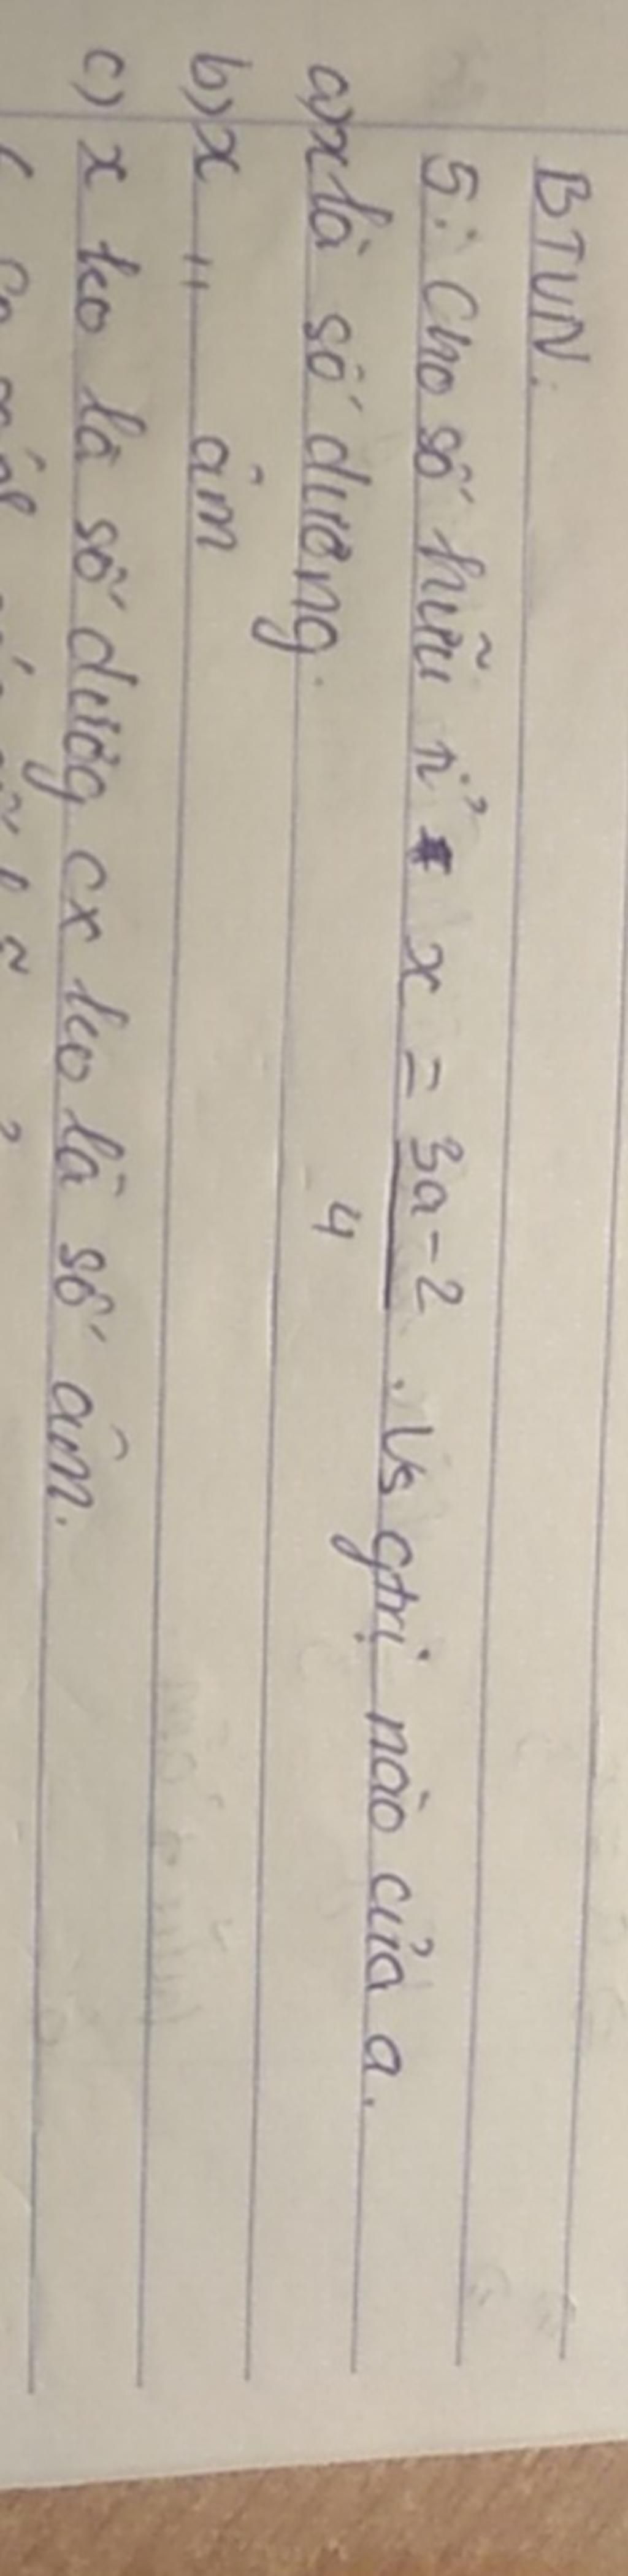 BTVN:
5: Cho số hữu tỉ x = 3a-2 . Vs gtrị nào của a.
4
a) x là số dương.
b) x _ " _ âm
c) x ko là số dươg cx ko là số âm.